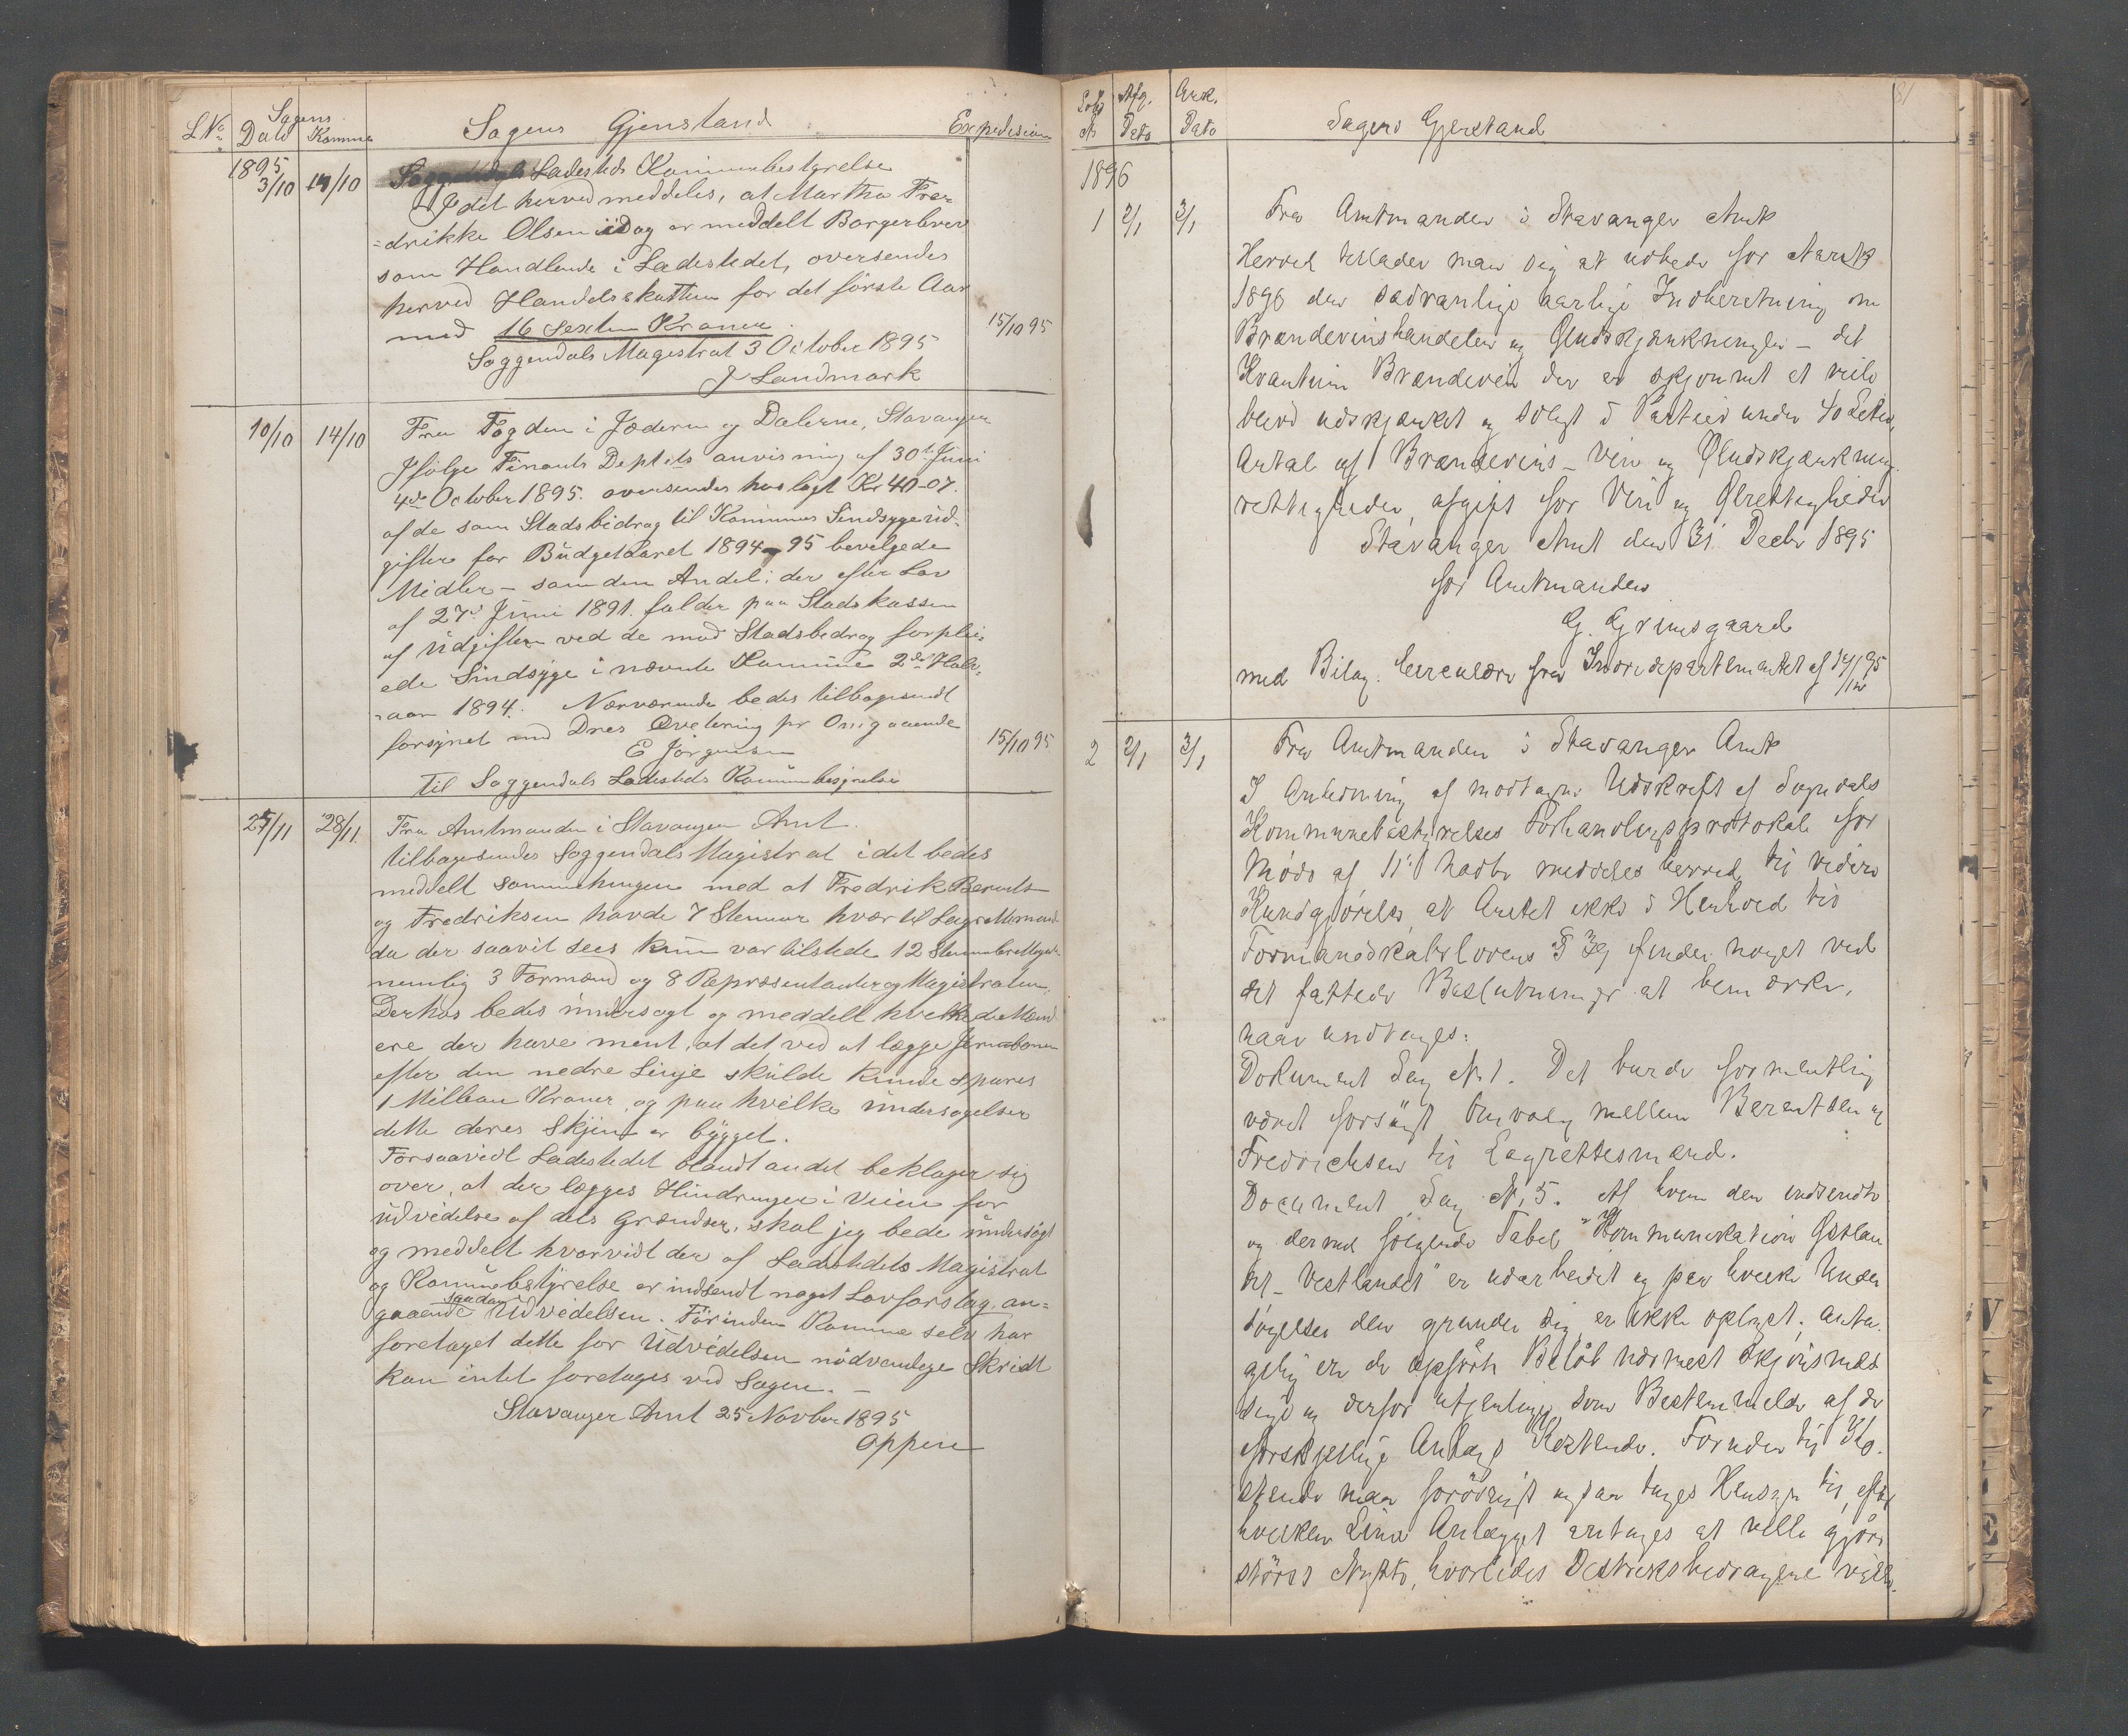 L No Sagens Dato Komme Sagens Gjenstand Expedision
1895
3/10 14/10 Ladesteds Kommunebestyrelse
Idet herved meddeles, at Martha Fre-
=drikke Olsen idag er meddelt Borgerbrev
som Handlende i Ladestedet, oversendes
herved Handelsskatten for det første Aar
med 16 Sexten Kroner. 15/10 95
Soggendals Magestrat 3 October 1895
J Landmark
10/10 14/10 Fra Fogden i Jædern og Dalerne, Stavanger
Ifølge Finants Deptets anvisning af 30te Juni
4de October 1895. oversendes hoslagt Kr 40-07.
af de som Stadsbidrag til Kommunes Sindsygeud-
gifter for Büdgetaaret 1894-95 bevilgede
Midler – som den Andel, der efter Lov
af 27de Juni 1891. falder paa Stadskassen
af Udgiften ved de med Stadsbedrag forplei-
ede Sindsyge i nævnte Kommune 2det Halv-
=aar 1894. Nærværende bedes tilbagesendt
forsynet med Dres Qvetering pr Omgaaende
E Jørgensen 15/10 95
til Soggendals Ladesteds Kommunebestyrelse
25/11 28/11 Fra Amtmanden i Stavanger Amt.
tilbagesendes Soggendals Magistrat idet bedes
meddelt sammenhengen med at Fredrik Berents
og Fredriksen havde 7 Stemmer hver til Lagrettemænd
da der saavit sees kun var tilstede 12 Stemmeberettigede
nemlig 3 Formænd og 8 Repræsentanter og Magistraten.
Derhos bedes undersøgt og meddelt hvilke de Mænd
ere der have ment, at det ved at lægge Jernbanen
efter den nedre Linje skulde kunde spares
1 Million Kroner, og paa hvilke undersøgelser
dette deres Skjøn er bygget.
Forsaavidt Ladestedet blandt andet beklager sig
over, at der lægges Hindringer i Veien for
Udvidelse af dets Grændser, skal jeg bede undersøgt
og meddelt hvorvidt der af Ladestedets Magistrat
og Kommunebestyrelse er indsendt noget Lovforslag. an=
gaaende saadan Udvidelsen. Förinden Kommune selv har
foretaget dette for Udvidelsen nödvendige Skridt
kan intet foretages ved Sagen. –
Stavanger Amt 25 Novber 1895
Oppen
81
Løb N Afg. Dato Ank. Dato Sagens Gjenstand
1896
1 2/1 3/1 Fra Amtmanden i Stavanger Amt
Herved tillader man sig at udbede for
1896 den sædvanlige aarlige Indberetning om
Brændevinshandelen og Øludskjænkningen – det
Kvantum Brændevin der er skjønnet at være
blevet udskjænket og solgt i Partier under 40 Liter,
Antal af Brændevins- Vin og Øludskjænknings
rettigheder, afgift for Vin og Ølrettigheder
Stavanger Amt den 31 Decbr 1895
for Amtmanden
G. Grimsgaard
med Bilag. Circulære fra Indredepartementet af 14/12 95
2 2/1 3/1 Fra Amtmanden i Stavanger Amt
I Anledning af modtagne Udskrift af Sogndals
Kommunebestyrelses Forhandlingsprotokol for
Møde af 11te hadtv meddeles herved til videre
Kundgjørelse, at Amtet ikke i Henhold til
Formandskabslovens § 39 finder noget ved
det fattede Beslutninger at bemærke,
naar undtages:
Dokument Sag N. 1. Det burde formentlig
været forsøgt Omvalg mellem Berentsen og
Fredrichsen til Lagrettesmænd.
Document Sag N. 5. Af hvem den indsendte
og dermed følgende Tabel "Kommunikation Østlan
det – Vestlandet" er udarbeidet og paa hvilke Under
søgelser den grunder sig, er ikke oplyst; anta-
gelig er de opførte Beløb nærmest skjønsmæs
sige og derfor som Bestemmelse af de
forskjellige Anlægs Kostende. Foruden til Ko-
stende maa forövrigt ogsaa tages Hensyn til, efter
hvilken Linie Anlægget antages at ville gjöre
störst Nytte, hvorledes Destriksbedragene ville